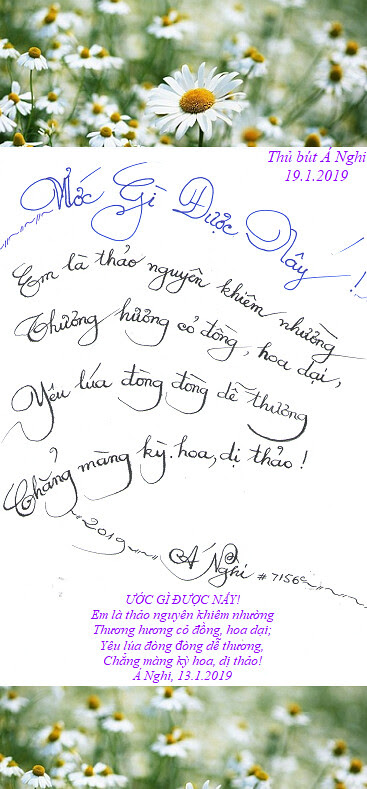 Thủ bút Á Nghi
19.1.2019
Ước Gì Được Nấy!
Em là thảo nguyên khiêm nhường
Thương hương cỏ đồng, hoa dại,
Yêu lúa đòng đòng dễ thương
Chẳng màng kỳ hoa, dị thảo!
2019
Á Nghi #7156
ƯỚC GÌ ĐƯỢC NẤY!
Em là thảo nguyên khiêm nhường
Thương hương cỏ đồng, hoa dại;
Yêu lúa đòng đòng dễ thương,
Chẳng màng kỳ hoa, dị thảo!
Á Nghi, 13.1.2019